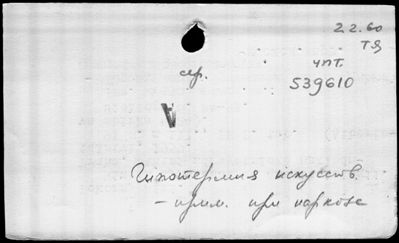 2.2.60
ТЯ
чпт.
539610
сер.
Гипотермия искусств.
– прим. при наркозе